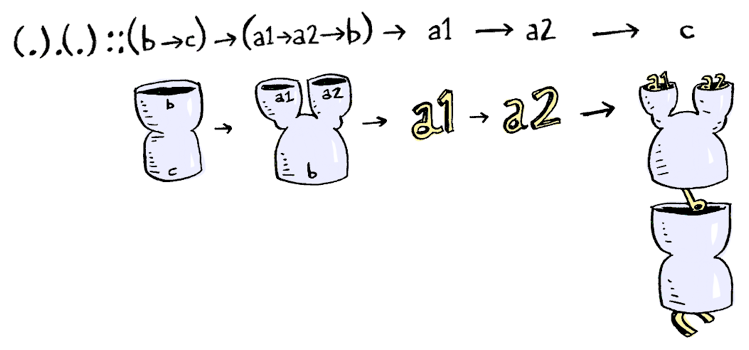 (.).(.) :: (b → c) → (a1 → a2 → b) → a1 → a2 → c
b a1 a2 → a1 → a2 → a1 a2
c → b → b
c